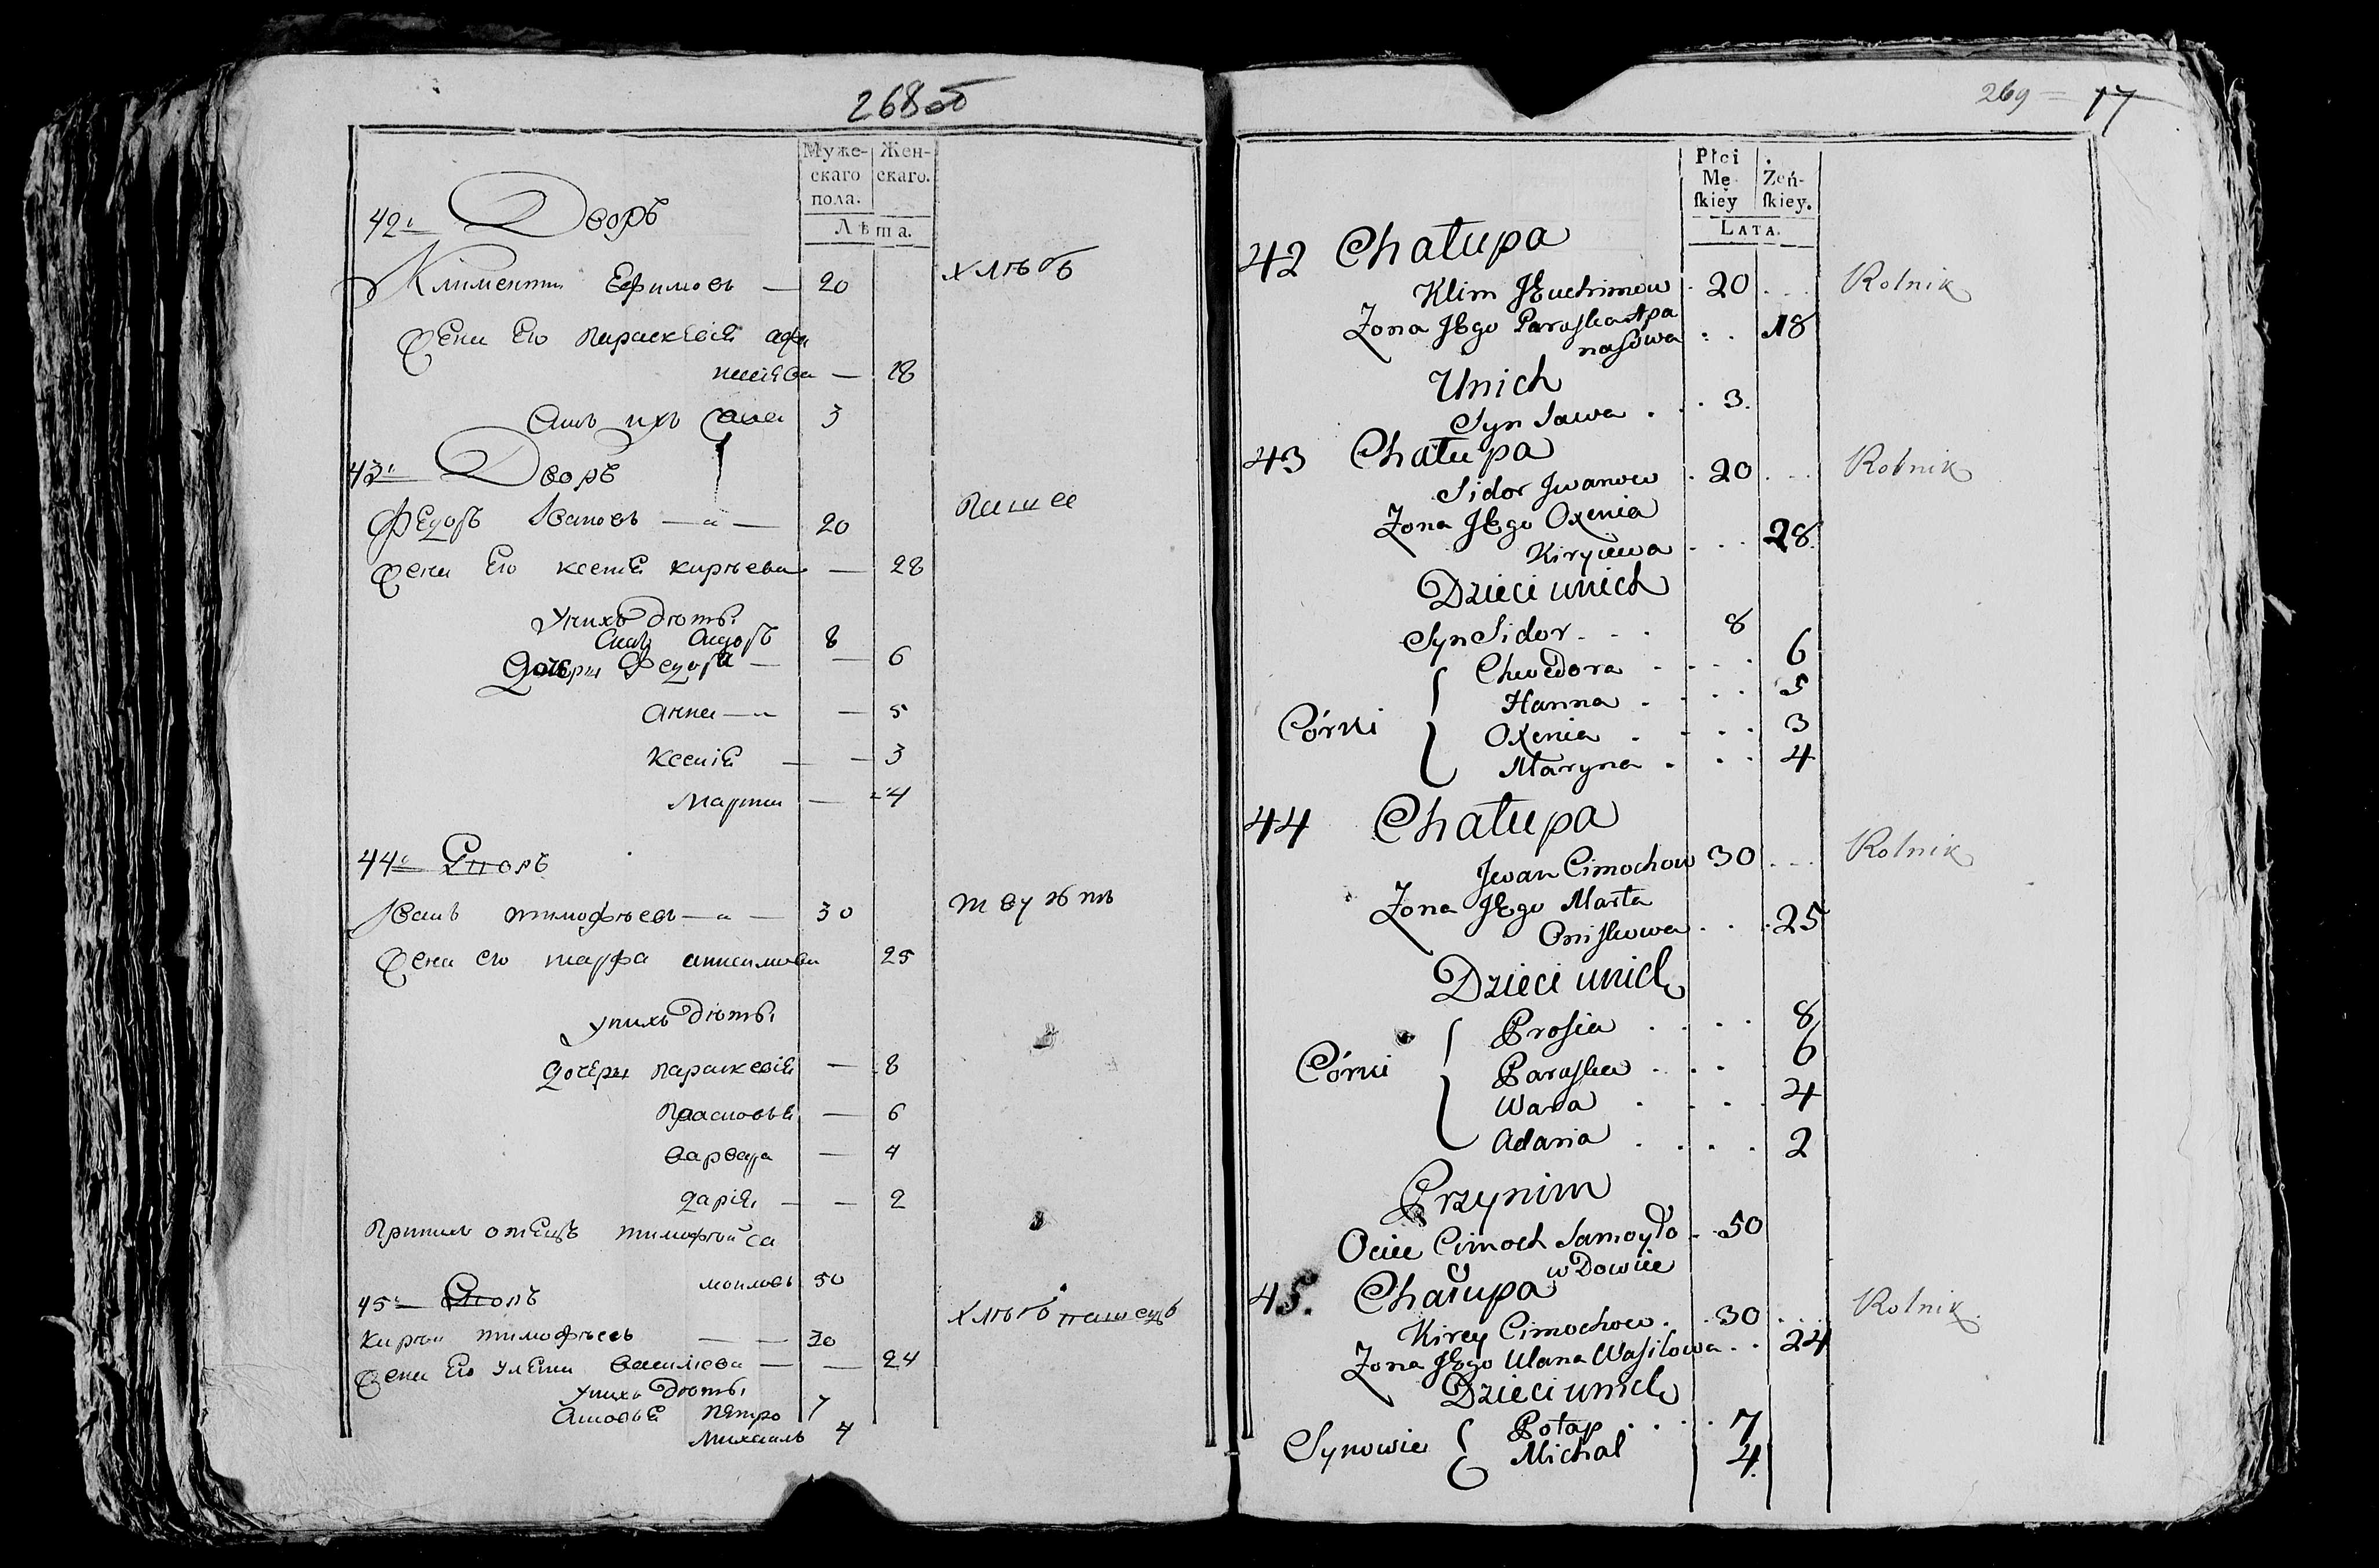 268об
Муже-
скаго
пола.
Жен-
скаго.
Лѣта.
42. Дворъ
Климентiй Ефимовъ — 20
хлѣбъ
Жена Его параскевiя афа
насiева — 18
Сынъ ихъ Сава 3
43. Дворъ
Федоръ Ивановъ — 20
пашее
Жена Его ксенiя кирѣева — 28
У нихъ дѣти.
Сынъ Сидоръ 8
Дочери Федора — — 6
Анна — — 5
Ксенiя — — 3
Марина — 4
44. Дворъ
Иванъ тимофѣевъ — 30
Жена его марфа анисимова 25
у нихъ дѣти.
дочери параскевiя — 8
— 6
варвара — 4
дарiя — — 2
При нихъ отецъ тимофѣй са
моиловъ 50
45. Дворъ
хлѣбъ пашецъ
Кирѣй тимофѣевъ — — 30
Жена Его улiяна василiева — — 24
у нихъ дѣти.
Сыновья Петро 7
Михаилъ 4
269 = 17
Płci
Mę-
ſkiey
Żeń-
ſkiey.
LATA.
42 Chałupa
Klim JEuchimow . 20 . . .
Rolnik
Żona JEgo Paraſka Apa
naſowa . . 18
Unich
Syn Sawa . . . 3.
43 Chałupa
Sidor Jwanow . 20 . . .
Rolnik
Żona JEgo Oxenia
Kiryiewa . . . 28.
Dzieci unich
Syn Sidor . . . 8
Chwedora . . . . 6
Hanna . . . . 5
Córki
Oxenia . . . . 3
Maryna . . . 4
44 Chałupa
Jwan Cimochow 30 . . .
Rolnik
Żona JEgo Marta
Oniſkowa . . . 25
Dzieci unich
Proſia . . . . 8
Córki
Paraſka . . . 6
Wara . . . . 4
Adaria . . . . 2
Przynim
Ociec Cimoch Samoyło . 50
wDowiec
45. Chałupa
Kirey Cimochow . . 30 . . .
Rolnik.
Żona JEgo Ulana Waſilowa . . 24
Dzieci unich
Potap . . . . 7
Synowie
Michał 4.